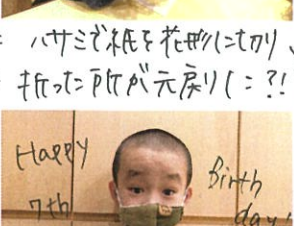 ハサミで紙を花形に切り、
折った所が元戻りに?!
Happy Birth
7th day!